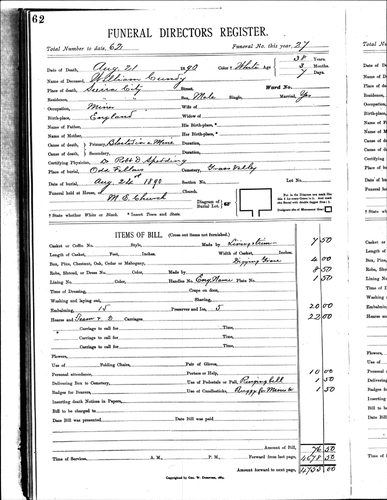 62
FUNERAL DIRECTORS REGISTER.
Total Number to date, 62 Funeral No. this year, 27
Date of Death, Aug 21 1890 Color† White Age 38 Years. 3 Months. 7 Days.
Name of Deceased, William Cundy
Place of death, Sierra City Street. Ward No.
Residence, Sex, Male Single. Married, Yes
Occupation, Miner Wife of
Birthplace,* England Widow of
Name of Father, His Birth-place,*
Name of Mother, Her Birth-place,*
Cause of death: Primary, Blasted in a Mine Duration,
Cause of death: Secondary, Duration,
Certifying Physician, Dr Robt D Spedding
Place of burial, Odd Fellows Cemetery, Grass Valley
Date of burial, Aug 24th 1890 Section No. Lot No.
Funeral held at House, or M. E. Church
Diagram of Burial Lot,
† State whether White or Black. * Insert Town and State.
ITEMS OF BILL. (Cross out Items not furnished.)
Casket or Coffin No. Style, Made by 7 50
Length of Casket, Feet, Inches. Width of Casket, Inches.
Box, Pine, Chestnut, Oak, Cedar or Mahogany, Digging Grave 4 00
Robe, Shroud, or Dress No. Color, Made by 8 50
Lining No. Color, Handles No. Plate No. 1 50
Time of Dressing, Crape on door,
Washing and laying out, Shaving,
Embalming, 15 Preserver and Ice, 5 20 00
Hearse and Team & 2 Carriages. 22 00
Carriage to call for Time,
Carriage to call for Time,
Carriage to call for Time,
Flowers,
Use of Folding Chairs, Pair of Gloves,
Personal attendance, Porters or Help, 10 00
Delivering Box to Cemetery, Use of Pedestals or Pall, Ringing bell 1 50
Badges for Bearers, Use of Candlesticks, 1 50
Inserting death Notices in Papers,
Bill to be charged to
Date Bill was presented, Date Bill was paid,
Amount of Bill, 76 50
Time of Services, A. M., P. M. Forward from last page, 4678 50
Amount forward to next page, 4755 00